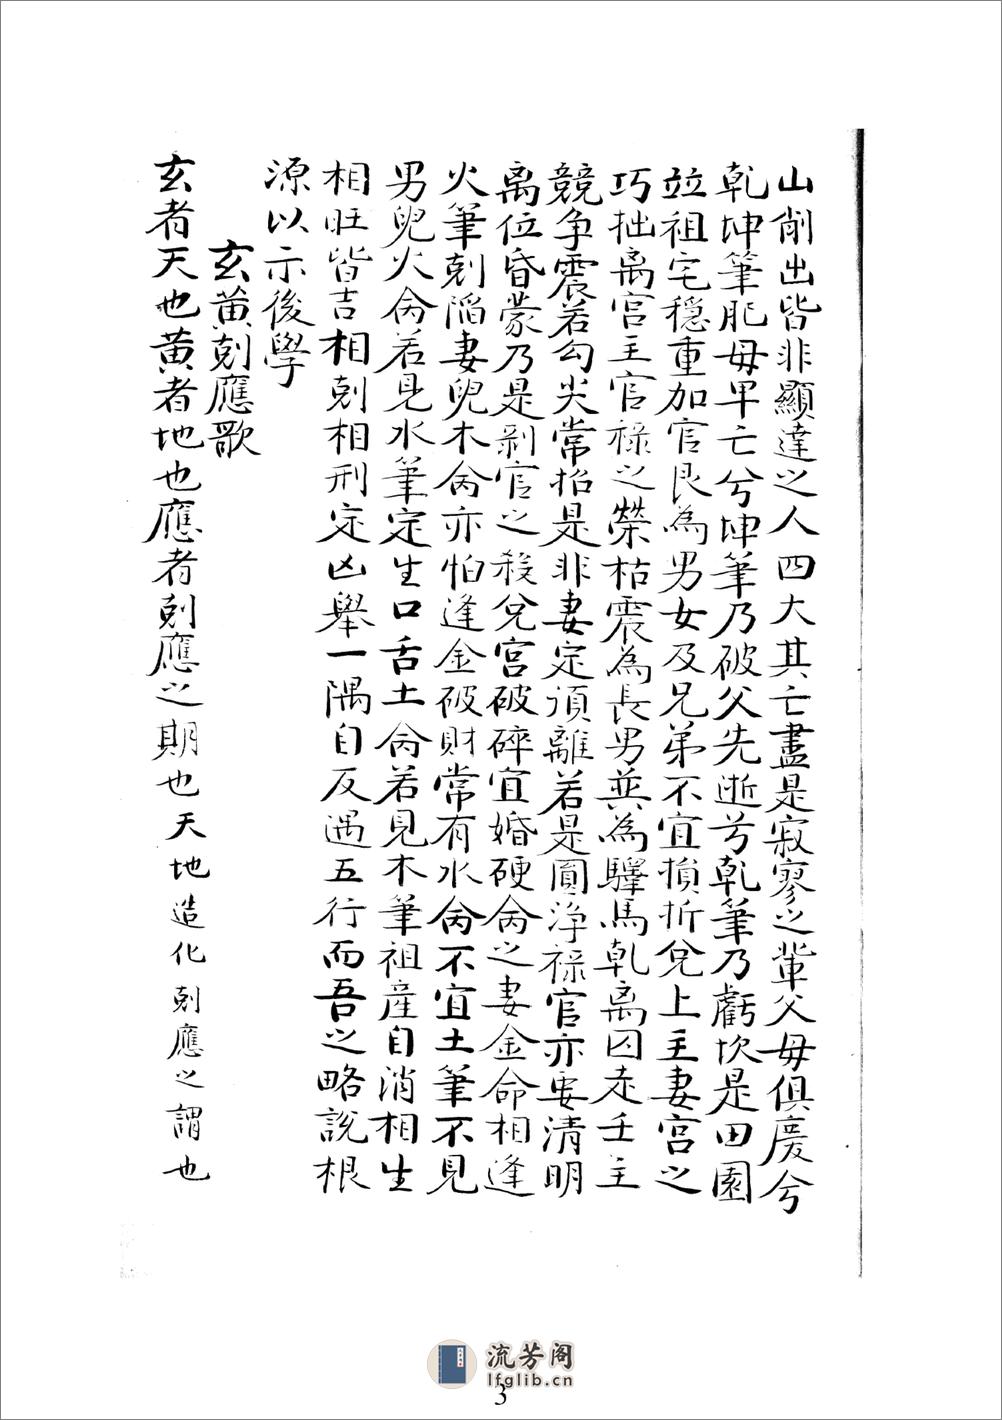 山削出皆非顯達之人四大其亡盡是寂寥之輩父母俱慶兮
乾坤筆肥母早亡兮坤筆乃破父先逝兮乾筆乃虧坎是田園
並祖宅穩重加官艮為男女及兄弟不宜損折兌上主妻宮之
巧拙离宮主官祿之榮枯震為長男巽為驛馬乾离囚走壬主
競争震若勾尖常招是非妻定須離若是圓浄禄官亦要清明
离位昏蒙乃是剝官之殺兌宮破碎宜婚硬肏之妻金命相逢
火筆剋陷妻兒木肏亦怕逢金破財常有水肏不宜土筆不見
男兒火肏若見水筆定生口舌土肏若見木筆祖産自消相生
相旺皆吉相剋相刑定凶舉一隅自反遇五行而吾之略說根
源以示後學
玄黄剋應歌
玄者天也黄者地也應者剋應之期也天地造化剋應之謂也
流芳阁
lfglib.cn
3